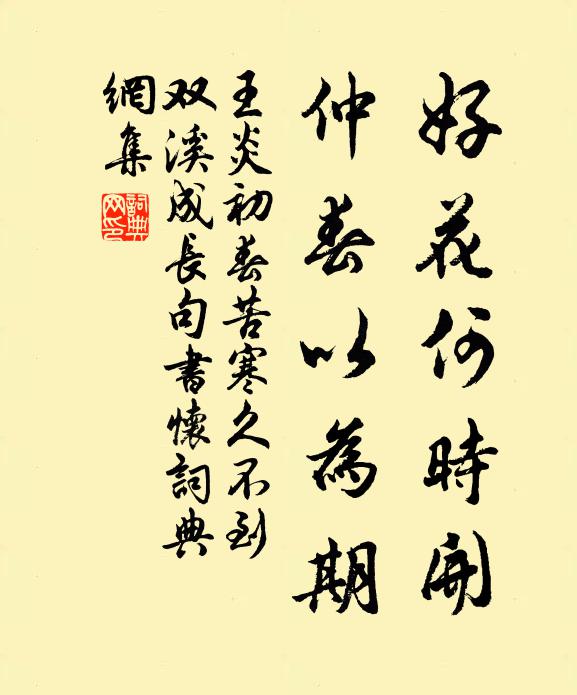 好花何時開
仲春以為期
王炎初春苦寒久不到
双溪成長句書懷詞典
網集
詞典
网印